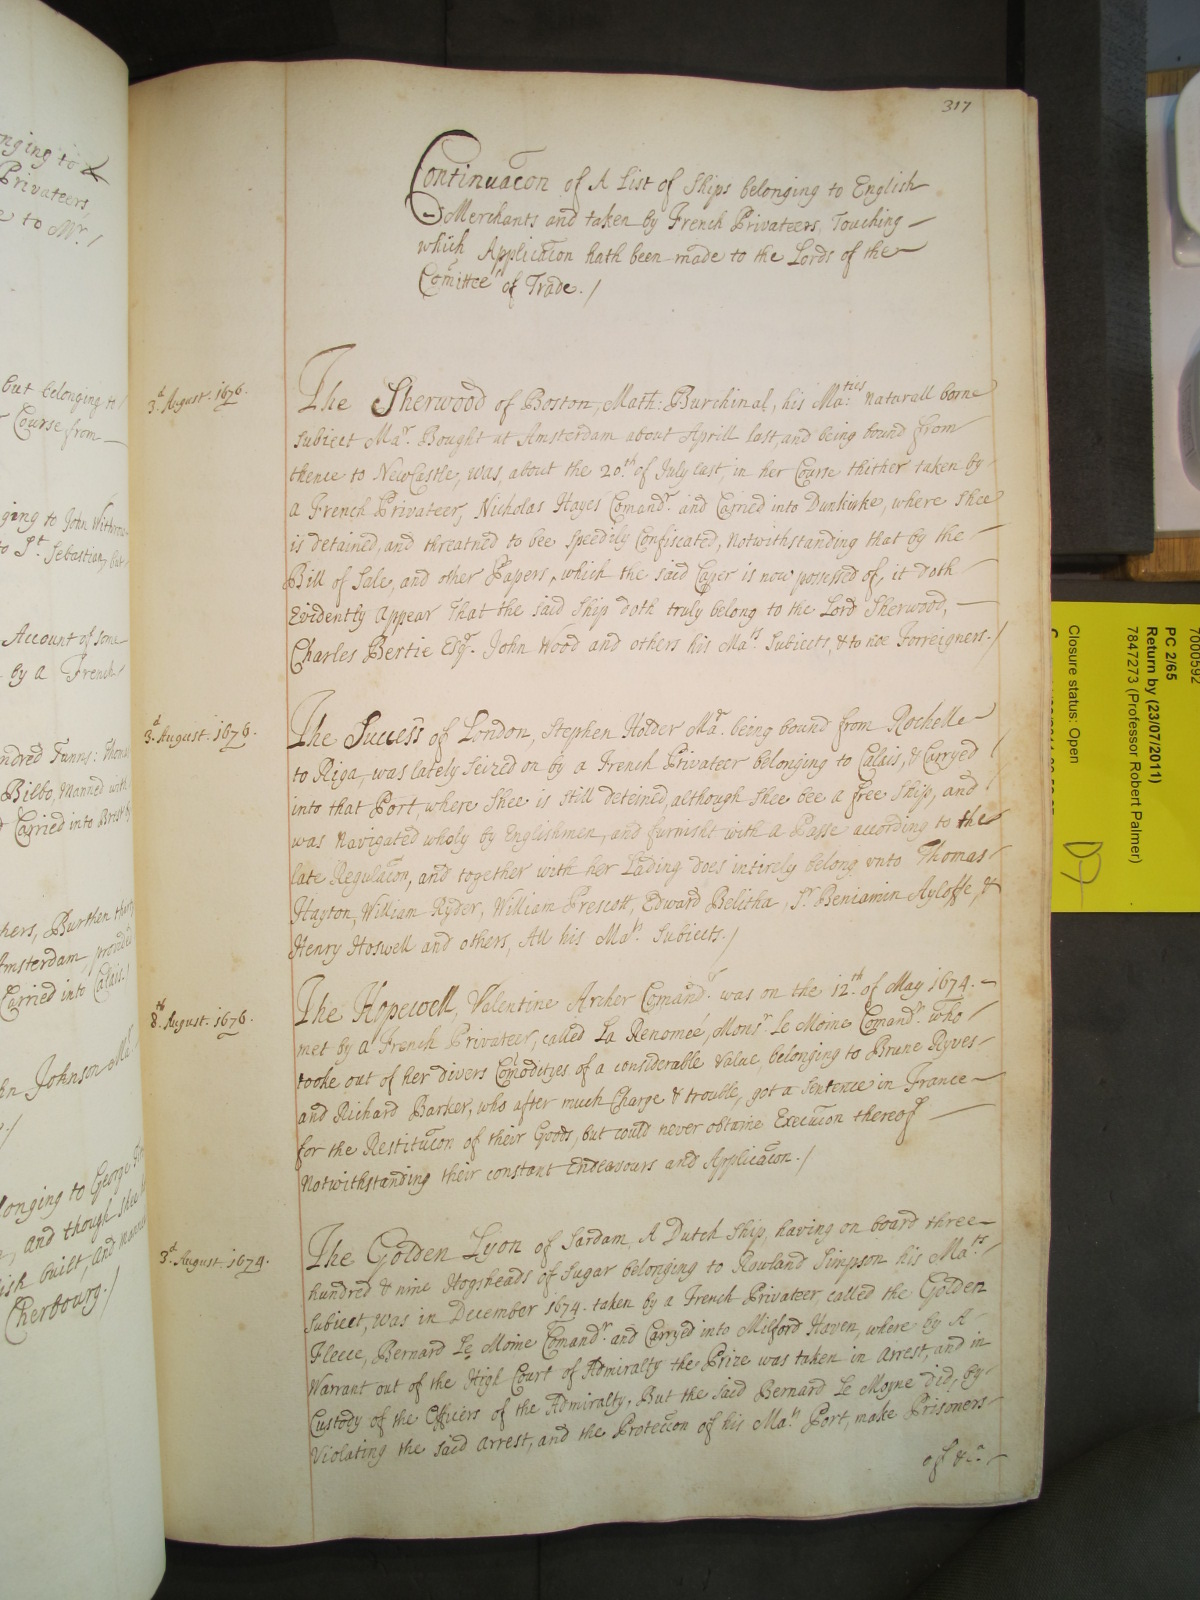 317
Continuacon of A List of Ships belonging to English
Merchants and taken by French Privateers, Touching
which Applicacon hath been made to the Lords of the
Comittee of Trade. /
3d. August. 1676.
The Sherwood of Boston, Math: Burchinal, his Maties: naturall borne
Subiect Mar. Bought at Amsterdam about Aprill last, and being bound from
thence to NewCastle, was, about the 20th. of July last, in her Course thither taken by
a French Privateer, Nicholas Hayes Comandr. and Carried into Dunkirke, where Shee
is detained, and threatned to bee Speedily Confiscated, Notwithstanding that by the
Bill of Sale, and other Papers, which the said Caper is now possessed of, it doth
Evidently appear That the said Ship doth truly belong to the Lord Sherwood,
Charles Bertie Esqr. John Wood and others his Mats. Subiects, & to noe Forreigners. /
3d. August. 1676.
The Success of London, Stephen Holder Mar. being bound from Rochelle
to Riga, was lately Seized on by a French Privateer belonging to Calais, & Carryed
into that Port, where Shee is still deteined, although Shee bee a free Ship, and
was Navigated wholy by Englishmen, and furnisht with a Passe according to the
late Regulacon, and together with her Lading does intirely belong vnto Thomas
Hayton, William Ryder, William Prescott, Edward Belitha, Sr. Beniamin Ayloffe, &
Henry Hoswell and others, All his Mats. Subiects. /
8th. August. 1676.
The Hopewell, Valentine Archer Comandr. was on the 12th. of May 1674.
met by a French Privateer, called La Renomeé, Monsr. Le Moine Comandr. who
tooke out of her divers Comodityes of a considerable Value, belonging to Brune Ryves
and Richard Barker, who after much Charge & trouble, got a Sentence in France
for the Restitucon of their Goods, but could never obtaine Execucon thereof
Notwithstanding their constant Endeavours and Applicacon. /
3d. August. 1674.
The Golden Lyon of Sardam, A Dutch Ship, having on board three
hundred & nine Hogsheads of Sugar belonging to Rowland Simpson his Mats.
Subiect, was in December 1674. taken by a French Privateer called the Golden
Fleece, Bernard Le Moine Comandr. and Carryed into Milford Haven, where by A
Warrant out of the High Court of Admiralty the Prize was taken in Arrest, and in
Custody of the Officers of the Admiralty. But the said Bernard Le Moyne did, by
Violating the said Arrest, and the Proteccon of his Mats. Port, make Prisoners
of &c.
nging to
Privateers,
e to Mr. /
but belonging to
Course from
ging to John
to St. Sebastian, but
Account of some
by a French
ndred Tunns:
Bilbo, Manned with
Carried into Brest
hers, Burthen
Amsterdam,
Carried into Calais. /
hn Johnson
longing to George
and though Shee
ish built, and
Cherbourg. /
7000592
PC 2/65
Return by (23/07/2011)
7847273 (Professor Robert Palmer)
Closure status: Open